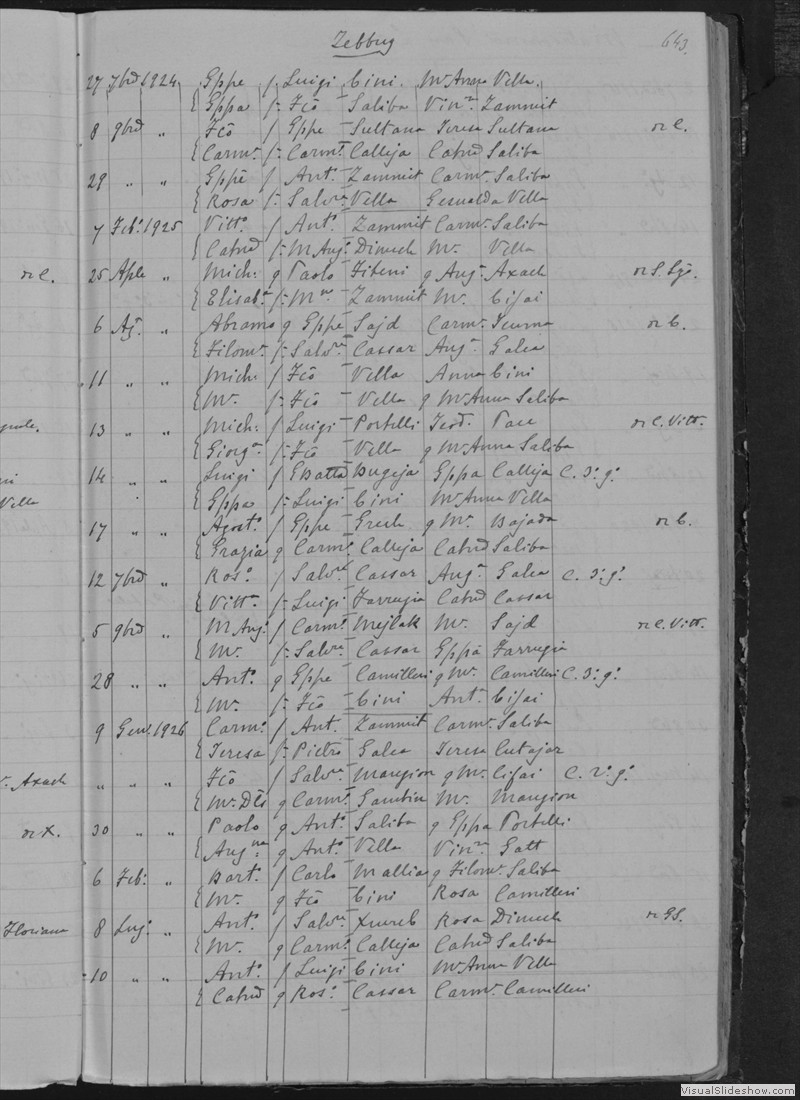 Zebbug 643.
27 7bre 1924 Gppe f Luigi Cini Mª Anna Vella
Gppa f Fcõ Saliba Vinª Zammit
8 9bre " Fcõ f Gppe Sultana Teresa Sultana di C.
Carmª f Carmº Calleja Catnª Saliba
29 " " Gppe f Antº Zammit Carmª Saliba
Rosa f Salvre Vella Gesualda Vella
7 Febº 1925 Vittº f Antº Zammit Carmª Saliba
f M Angº Dimech Mª Vella
di C. 25 Aple " Mich: q Paolo q Angª Axach di S. Lzo.
Elisabª f Zammit Mª Cifai
6 Agº " Abramo q Gppe Sajd Carmª di C.
Filomª f Salvre Cassar Angª Galea
11 " " Mich: f Fcõ Vella Anna Cini
Mª f Fcõ Vella q Mª Anna Saliba
13 " " Mich: f Luigi Portelli Teod. Pace di C. Vitt.
Giorgª f Fcõ Vella q Mª Anna Saliba
14 " " Luigi f GBatta Bugeja Gppa Calleja C. 3º gº
Vella Gppa f Luigi Cini Mª Anna Vella
17 " " Agostº f Gppe Grech q Mª Bajada di C.
Grazia q Carmº Calleja Catnª Saliba
12 7bre " Rosº f Salvre Cassar Angª Galea C. 3º gº
Vittª f Luigi Farrugia Catnª Cassar
5 9bre " M Angº f Carmº Mejlak Mª Sajd di C. Vitt.
Mª f Salvre Cassar Gppa Farrugia
28 " " Antº q Gppe Camilleri q Mª Camilleri C. 3º gº
Mª f Fcõ Cini Antª Cifai
9 Genº 1926 Carmº f Ant. Zammit Carmª Saliba
Teresa f Pietro Galea Teresa Cutajar
Axach " " " Fcõ f Salvre Mangion q Mª Cifai C. 2º gº
Mª q Carmº Gambin Mª Mangion
di X. 30 " " Paolo q Antº Saliba q Gppa Portelli
q Antº Vella Vinª Gatt
6 Feb: " Bart. f Carlo Mallia q Filomª Saliba
Mª q Fcõ Cini Rosa Camilleri
Floriana 8 Lugº " Antº f Salvre Xuereb Rosa Dimech di GS.
Mª q Carmº Calleja Catnª Saliba
10 " " Antº f Luigi Cini Mª Anna Vella
Catnª q Rosº Cassar Carmª Camilleri
VisualSlideshow.com